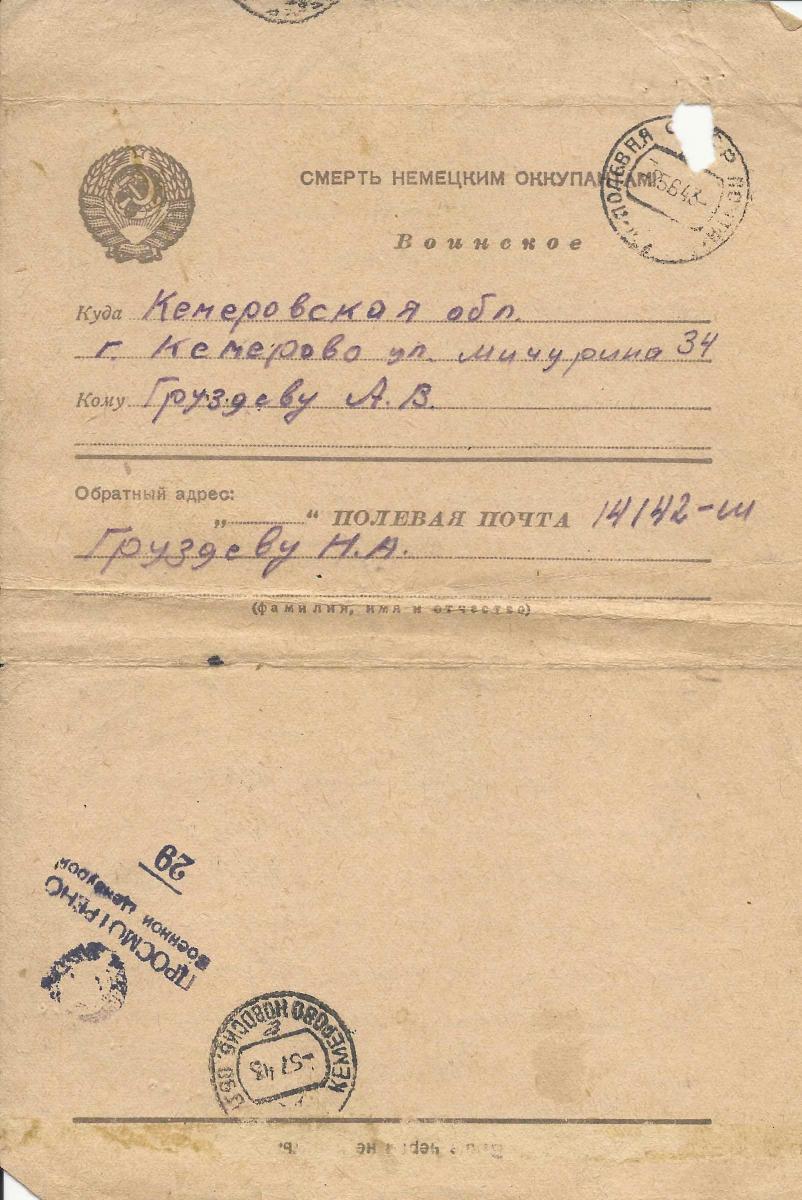 СМЕРТЬ НЕМЕЦКИМ ОККУПАНТАМ!
ПОЛЕВАЯ
25643
Воинское
Куда Кемеровская обл.
г. Кемерово ул. Мичурина 34
Кому Груздеву А.В.
Обратный адрес:
„ “ ПОЛЕВАЯ ПОЧТА 14142-ш
Груздеву Н.А.
(фамилия, имя и отчество)
29
ПРОСМОТРЕНО
Военной Цензурой
КЕМЕРОВО НОВОСИБ. ОБЛ.
-5743